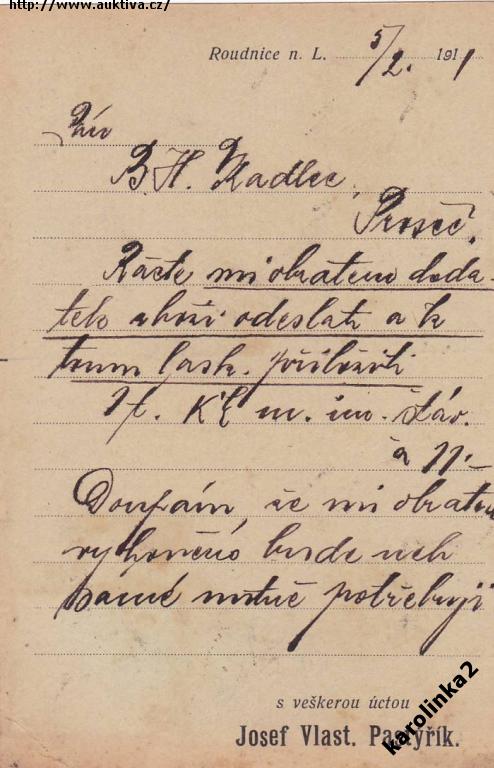 http://www.auktiva.cz/
Roudnice n. L. 5/2. 1911
Pán
B. H. Kadlec,
Proseč.
Račte mi obratem doda-
tek zboží odeslati a k
tomu lask. přiložiti
1 t. KE m. im. štáv.
à 11.–
Doufám, že mi obratem
vyhověno bude neb
samé nutně potřebuji
s veškerou úctou
Josef Vlast. Pastyřík.
karolinka2